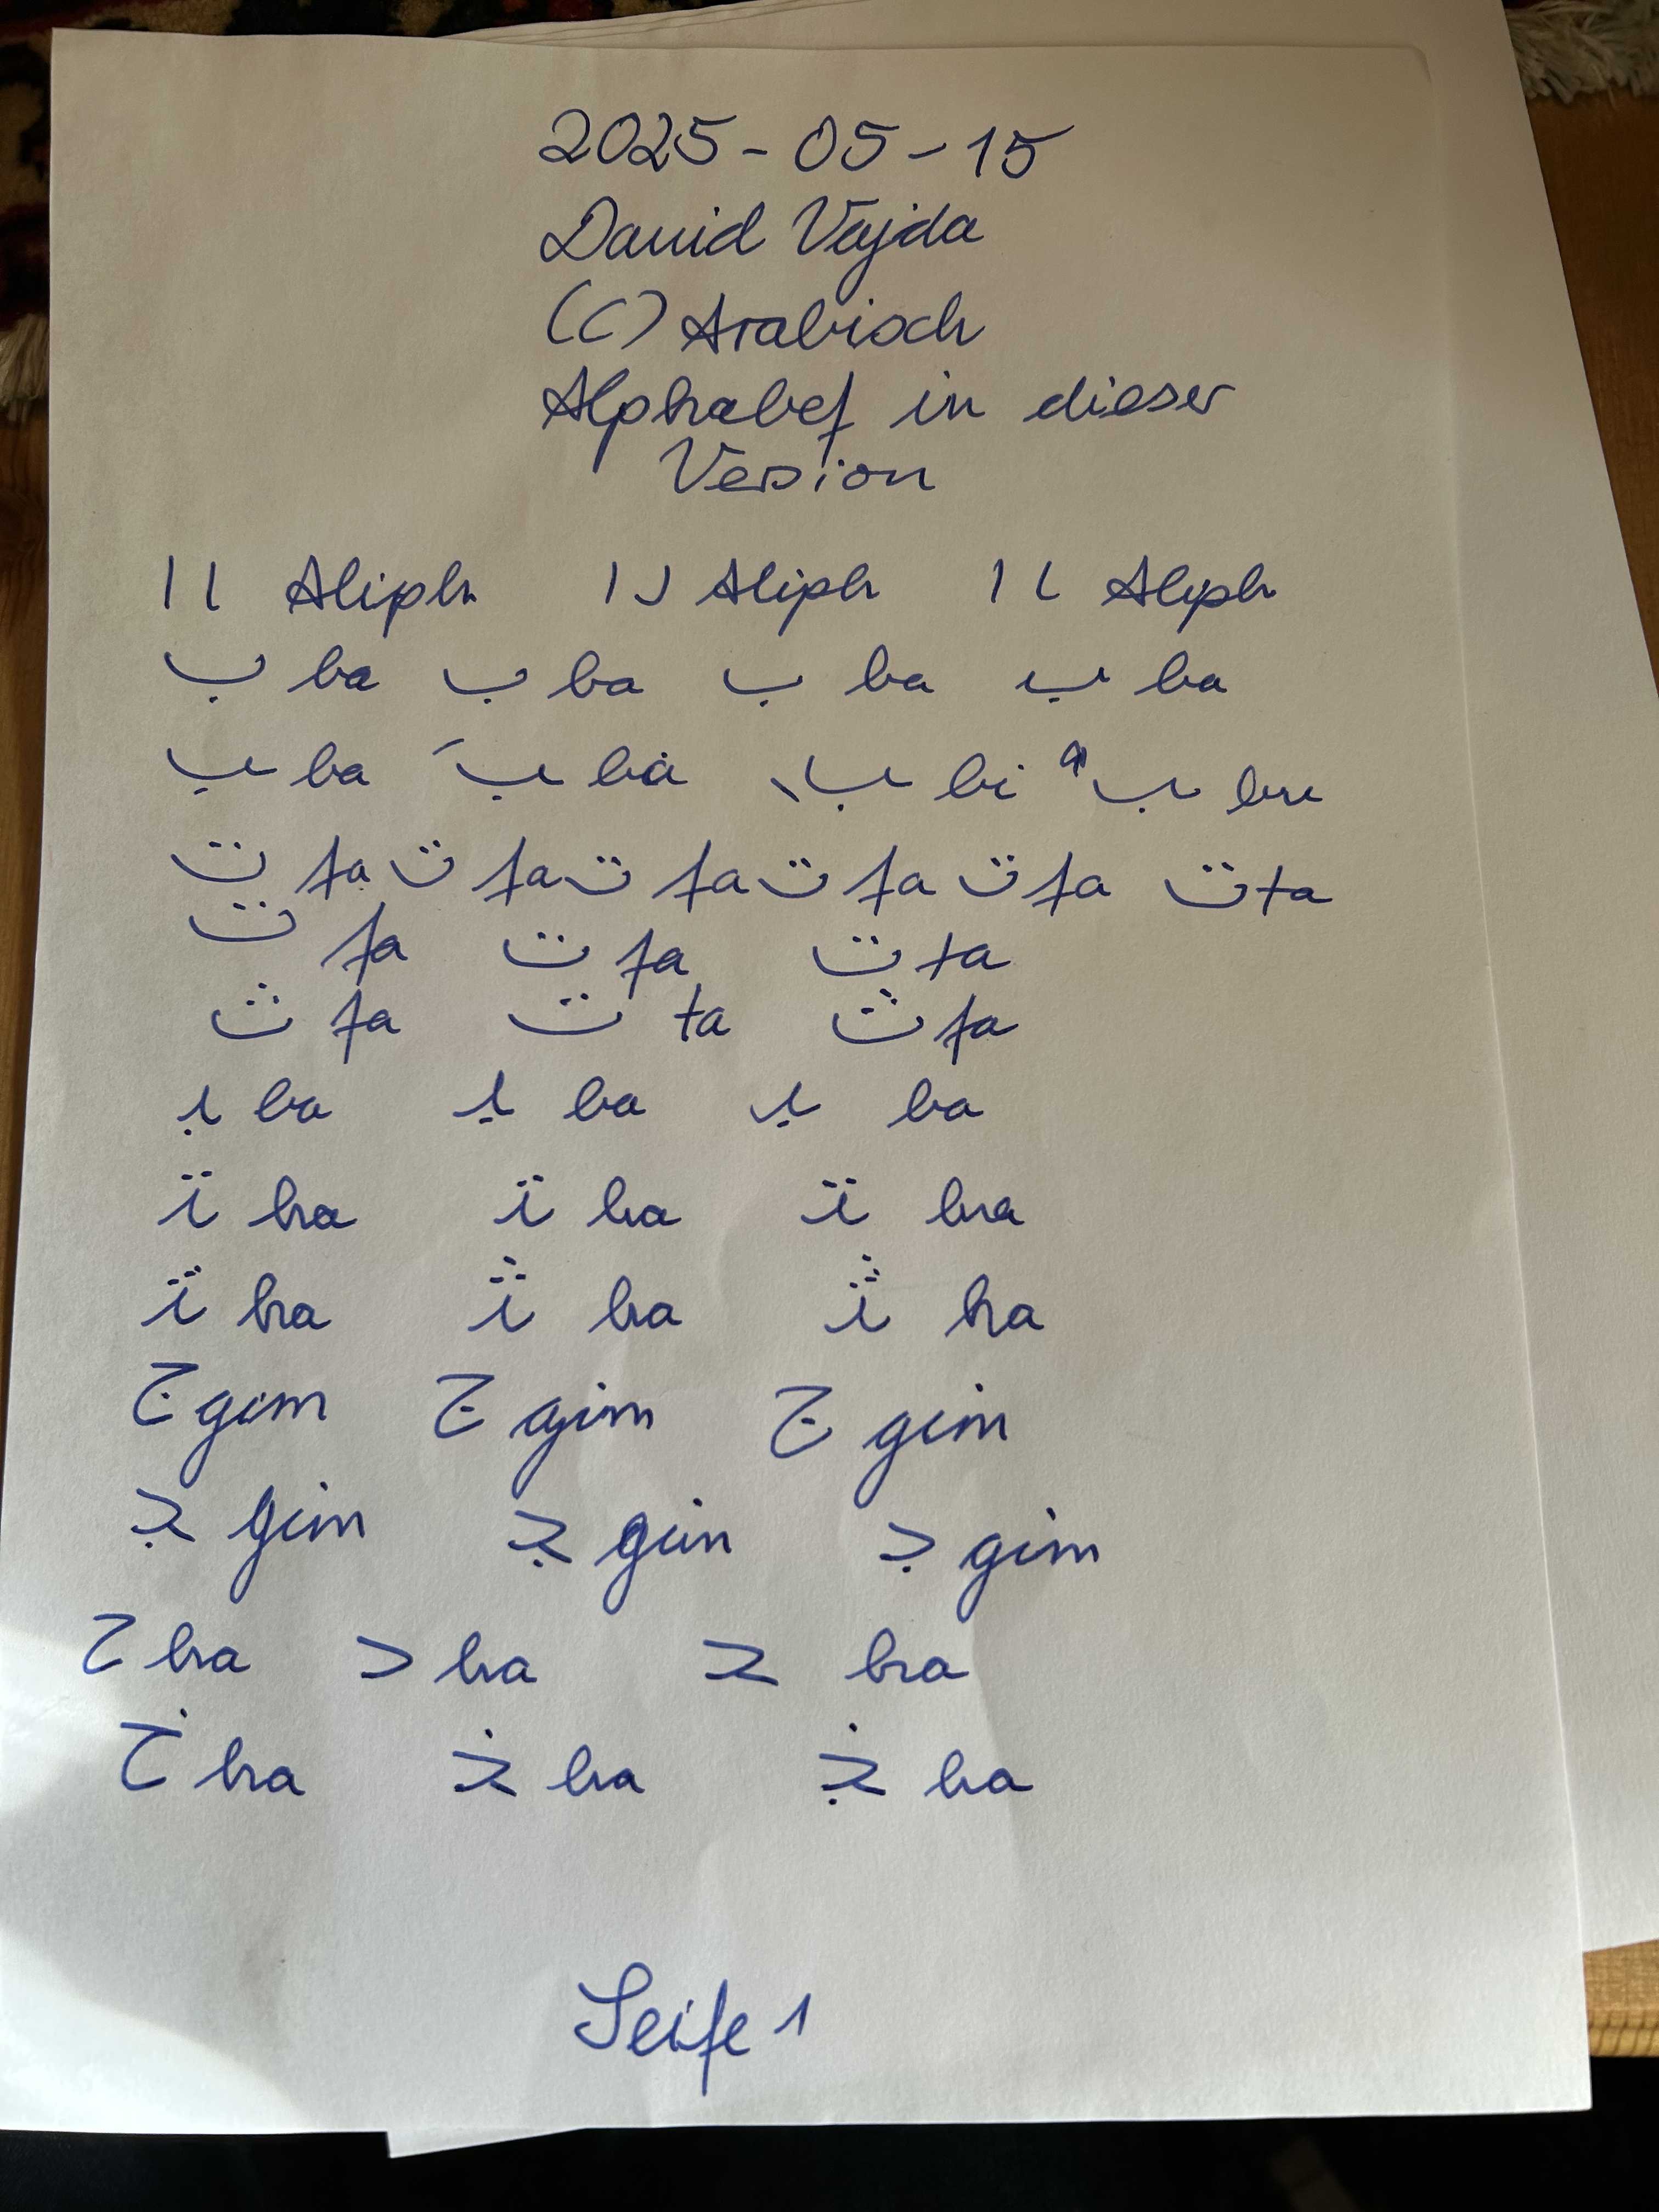 2025-05-15
David Vajda
(C) Arabisch
Alphabet in dieser
Vesion
ا ا Aliph ا ا Aliph ا ا Aliph
ب ba ب ba ب ba ب ba
ب ba بَ ba بِ bi بُ bu
ت ta ت ta ت ta ت ta ت ta ت ta
ت ta ت ta ت ta
ث ta ت ta ث ta
بـ ba بـ ba بـ ba
تـ ha تـ ha تـ ha
ثـ ha ثـ ha ثـ ha
ج gim ج gim ج gim
جـ gim جـ gim جـ gim
ح ha حـ ha حـ ha
خ ha خـ ha خـ ha
Seite 1